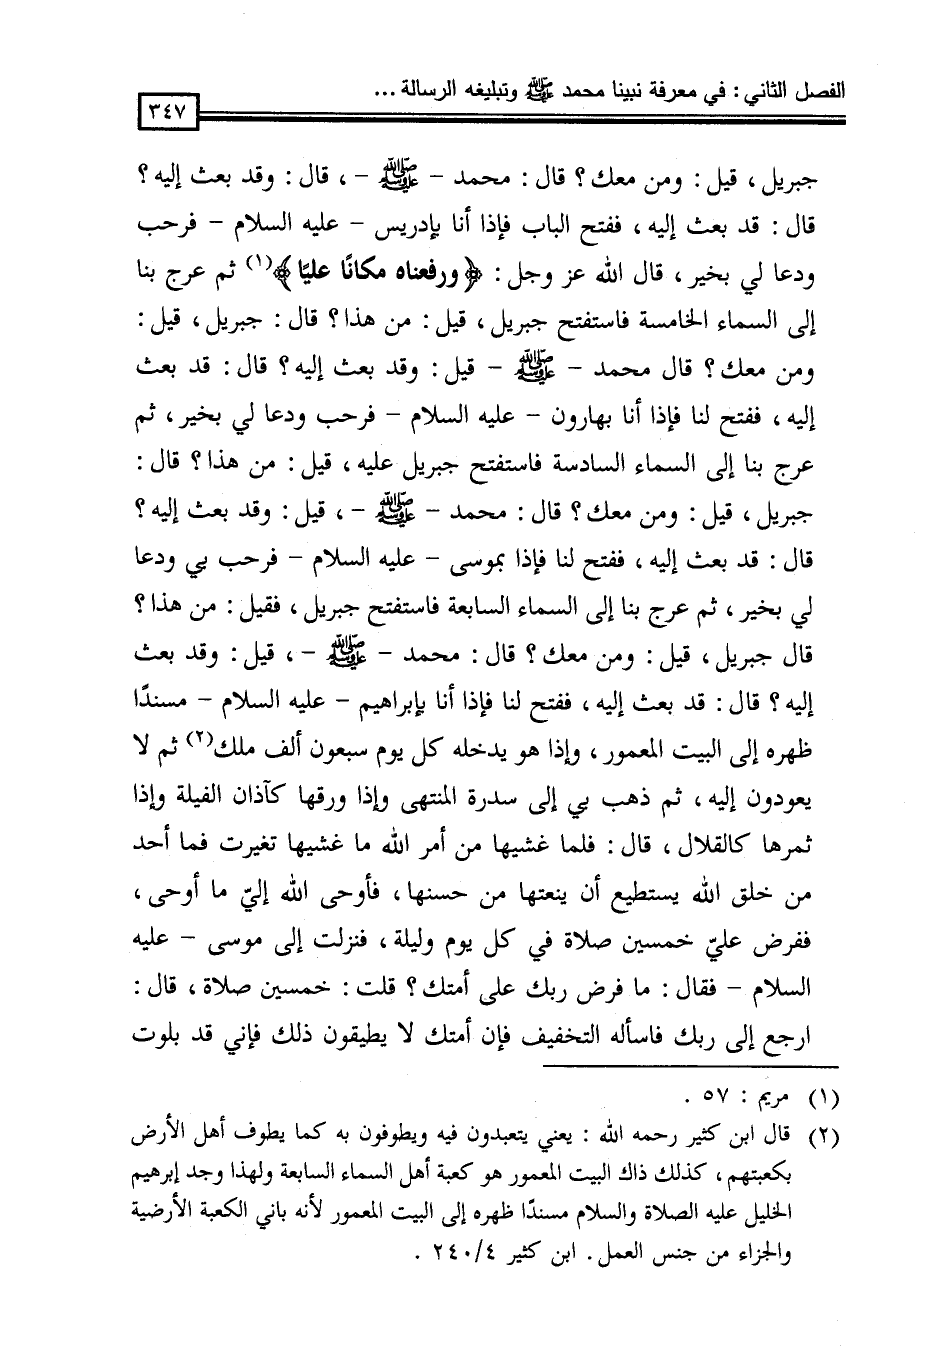 الفصل الثاني : في معرفة نبينا محمد ﷺ وتبليغه الرسالة ...
٣٤٧
جبريل ، قيل : ومن معك ؟ قال : محمد - ﷺ - ، قال : وقد بعث إليه ؟
قال : قد بعث إليه ، ففتح الباب فإذا أنا بإدريس - عليه السلام - فرحب
ودعا لي بخير ، قال الله عز وجل : ﴿ورفعناه مكانًا عليًا﴾(١) ثم عرج بنا
إلى السماء الخامسة فاستفتح جبريل ، قيل : من هذا ؟ قال : جبريل ، قيل :
ومن معك ؟ قال محمد - ﷺ - قيل : وقد بعث إليه ؟ قال : قد بعث
إليه ، ففتح لنا فإذا أنا بهارون - عليه السلام - فرحب ودعا لي بخير ، ثم
عرج بنا إلى السماء السادسة فاستفتح جبريل عليه ، قيل : من هذا ؟ قال :
جبريل ، قيل : ومن معك ؟ قال : محمد - ﷺ - ، قيل : وقد بعث إليه ؟
قال : قد بعث إليه ، ففتح لنا فإذا بموسى - عليه السلام - فرحب بي ودعا
لي بخير ، ثم عرج بنا إلى السماء السابعة فاستفتح جبريل ، فقيل : من هذا ؟
قال جبريل ، قيل : ومن معك ؟ قال : محمد - ﷺ - ، قيل : وقد بعث
إليه ؟ قال : قد بعث إليه ، ففتح لنا فإذا أنا بإبراهيم - عليه السلام - مسندًا
ظهره إلى البيت المعمور ، وإذا هو يدخله كل يوم سبعون ألف ملك(٢) ثم لا
يعودون إليه ، ثم ذهب بي إلى سدرة المنتهى وإذا ورقها كآذان الفيلة وإذا
ثمرها كالقلال ، قال : فلما غشيها من أمر الله ما غشيها تغيرت فما أحد
من خلق الله يستطيع أن ينعتها من حسنها ، فأوحى الله إليّ ما أوحى ،
ففرض عليّ خمسين صلاة في كل يوم وليلة ، فنزلت إلى موسى - عليه
السلام - فقال : ما فرض ربك على أمتك ؟ قلت : خمسين صلاة ، قال :
ارجع إلى ربك فاسأله التخفيف فإن أمتك لا يطيقون ذلك فإني قد بلوت
(١) مريم : ٥٧ .
(٢) قال ابن كثير رحمه الله : يعني يتعبدون فيه ويطوفون به كما يطوف أهل الأرض
بكعبتهم ، كذلك ذاك البيت المعمور هو كعبة أهل السماء السابعة ولهذا وجد إبرهيم
الخليل عليه الصلاة والسلام مسندًا ظهره إلى البيت المعمور لأنه باني الكعبة الأرضية
والجزاء من جنس العمل . ابن كثير ٢٤٠/٤ .